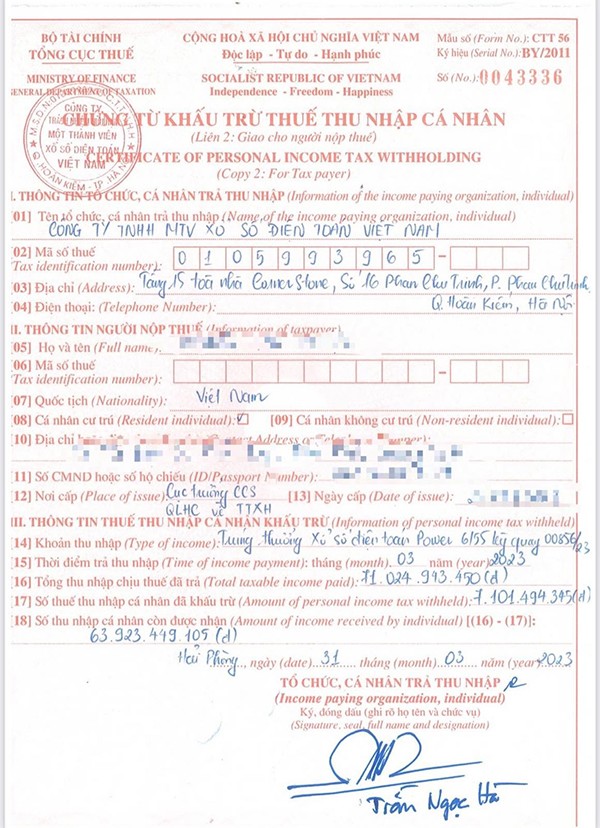 BỘ TÀI CHÍNH
TỔNG CỤC THUẾ
MINISTRY OF FINANCE
GENERAL DEPARTMENT OF TAXATION
CỘNG HOÀ XÃ HỘI CHỦ NGHĨA VIỆT NAM
Độc lập - Tự do - Hạnh phúc
SOCIALIST REPUBLIC OF VIETNAM
Independence - Freedom - Happiness
Mẫu số (Form No.): CTT 56
Ký hiệu (Serial No.): BY/2011
Số (No.): 0043336
CÔNG TY
MỘT THÀNH VIÊN
XỔ SỐ ĐIỆN TOÁN
VIỆT NAM
Q. HOÀN KIẾM - TP. HÀ
CHỨNG TỪ KHẤU TRỪ THUẾ THU NHẬP CÁ NHÂN
(Liên 2: Giao cho người nộp thuế)
CERTIFICATE OF PERSONAL INCOME TAX WITHHOLDING
(Copy 2: For Tax payer)
I. THÔNG TIN TỔ CHỨC, CÁ NHÂN TRẢ THU NHẬP (Information of the income paying organization, individual)
[01] Tên tổ chức, cá nhân trả thu nhập (Name of the income paying organization, individual)
CÔNG TY TNHH MTV XỔ SỐ ĐIỆN TOÁN VIỆT NAM
[02] Mã số thuế
Tax identification number): 0105993965
[03] Địa chỉ (Address): Tầng 15 toà nhà CornerStone, Số 16 Phan Chu Trinh, P. Phan Chu Trinh
[04] Điện thoại: (Telephone Number) Q. Hoàn Kiếm, Hà Nội
II. THÔNG TIN NGƯỜI NỘP THUẾ (Information of taxpayer)
[05] Họ và tên (Full name)
[06] Mã số thuế
Tax identification number):
[07] Quốc tịch (Nationality): Việt Nam
[08] Cá nhân cư trú (Resident individual): ☑ [09] Cá nhân không cư trú (Non-resident individual): ☐
[10] Địa chỉ
[11] Số CMND hoặc số hộ chiếu (ID/Passport Number):
[12] Nơi cấp (Place of issue): Cục trưởng CCS [13] Ngày cấp (Date of issue):
QLHC về TTXH
III. THÔNG TIN THUẾ THU NHẬP CÁ NHÂN KHẤU TRỪ (Information of personal income tax withheld)
[14] Khoản thu nhập (Type of income): Trúng thưởng Xổ số điện toán Power 6/55 kỳ quay 00856/23
[15] Thời điểm trả thu nhập (Time of income payment): tháng (month) 03 năm (year) 2023
[16] Tổng thu nhập chịu thuế đã trả (Total taxable income paid): 71.024.943.450 (đ)
[17] Số thuế thu nhập cá nhân đã khấu trừ (Amount of personal income tax withheld): 7.101.494.345 (đ)
[18] Số thu nhập cá nhân còn được nhận (Amount of income received by individual) [(16) - (17)]:
63.923.449.105 (đ)
Hải Phòng, ngày (date) 31 tháng (month) 03 năm (year) 2023
TỔ CHỨC, CÁ NHÂN TRẢ THU NHẬP
(Income paying organization, individual)
Ký, đóng dấu (ghi rõ họ tên và chức vụ)
(Signature, seal, full name and designation)
Trần Ngọc Hà